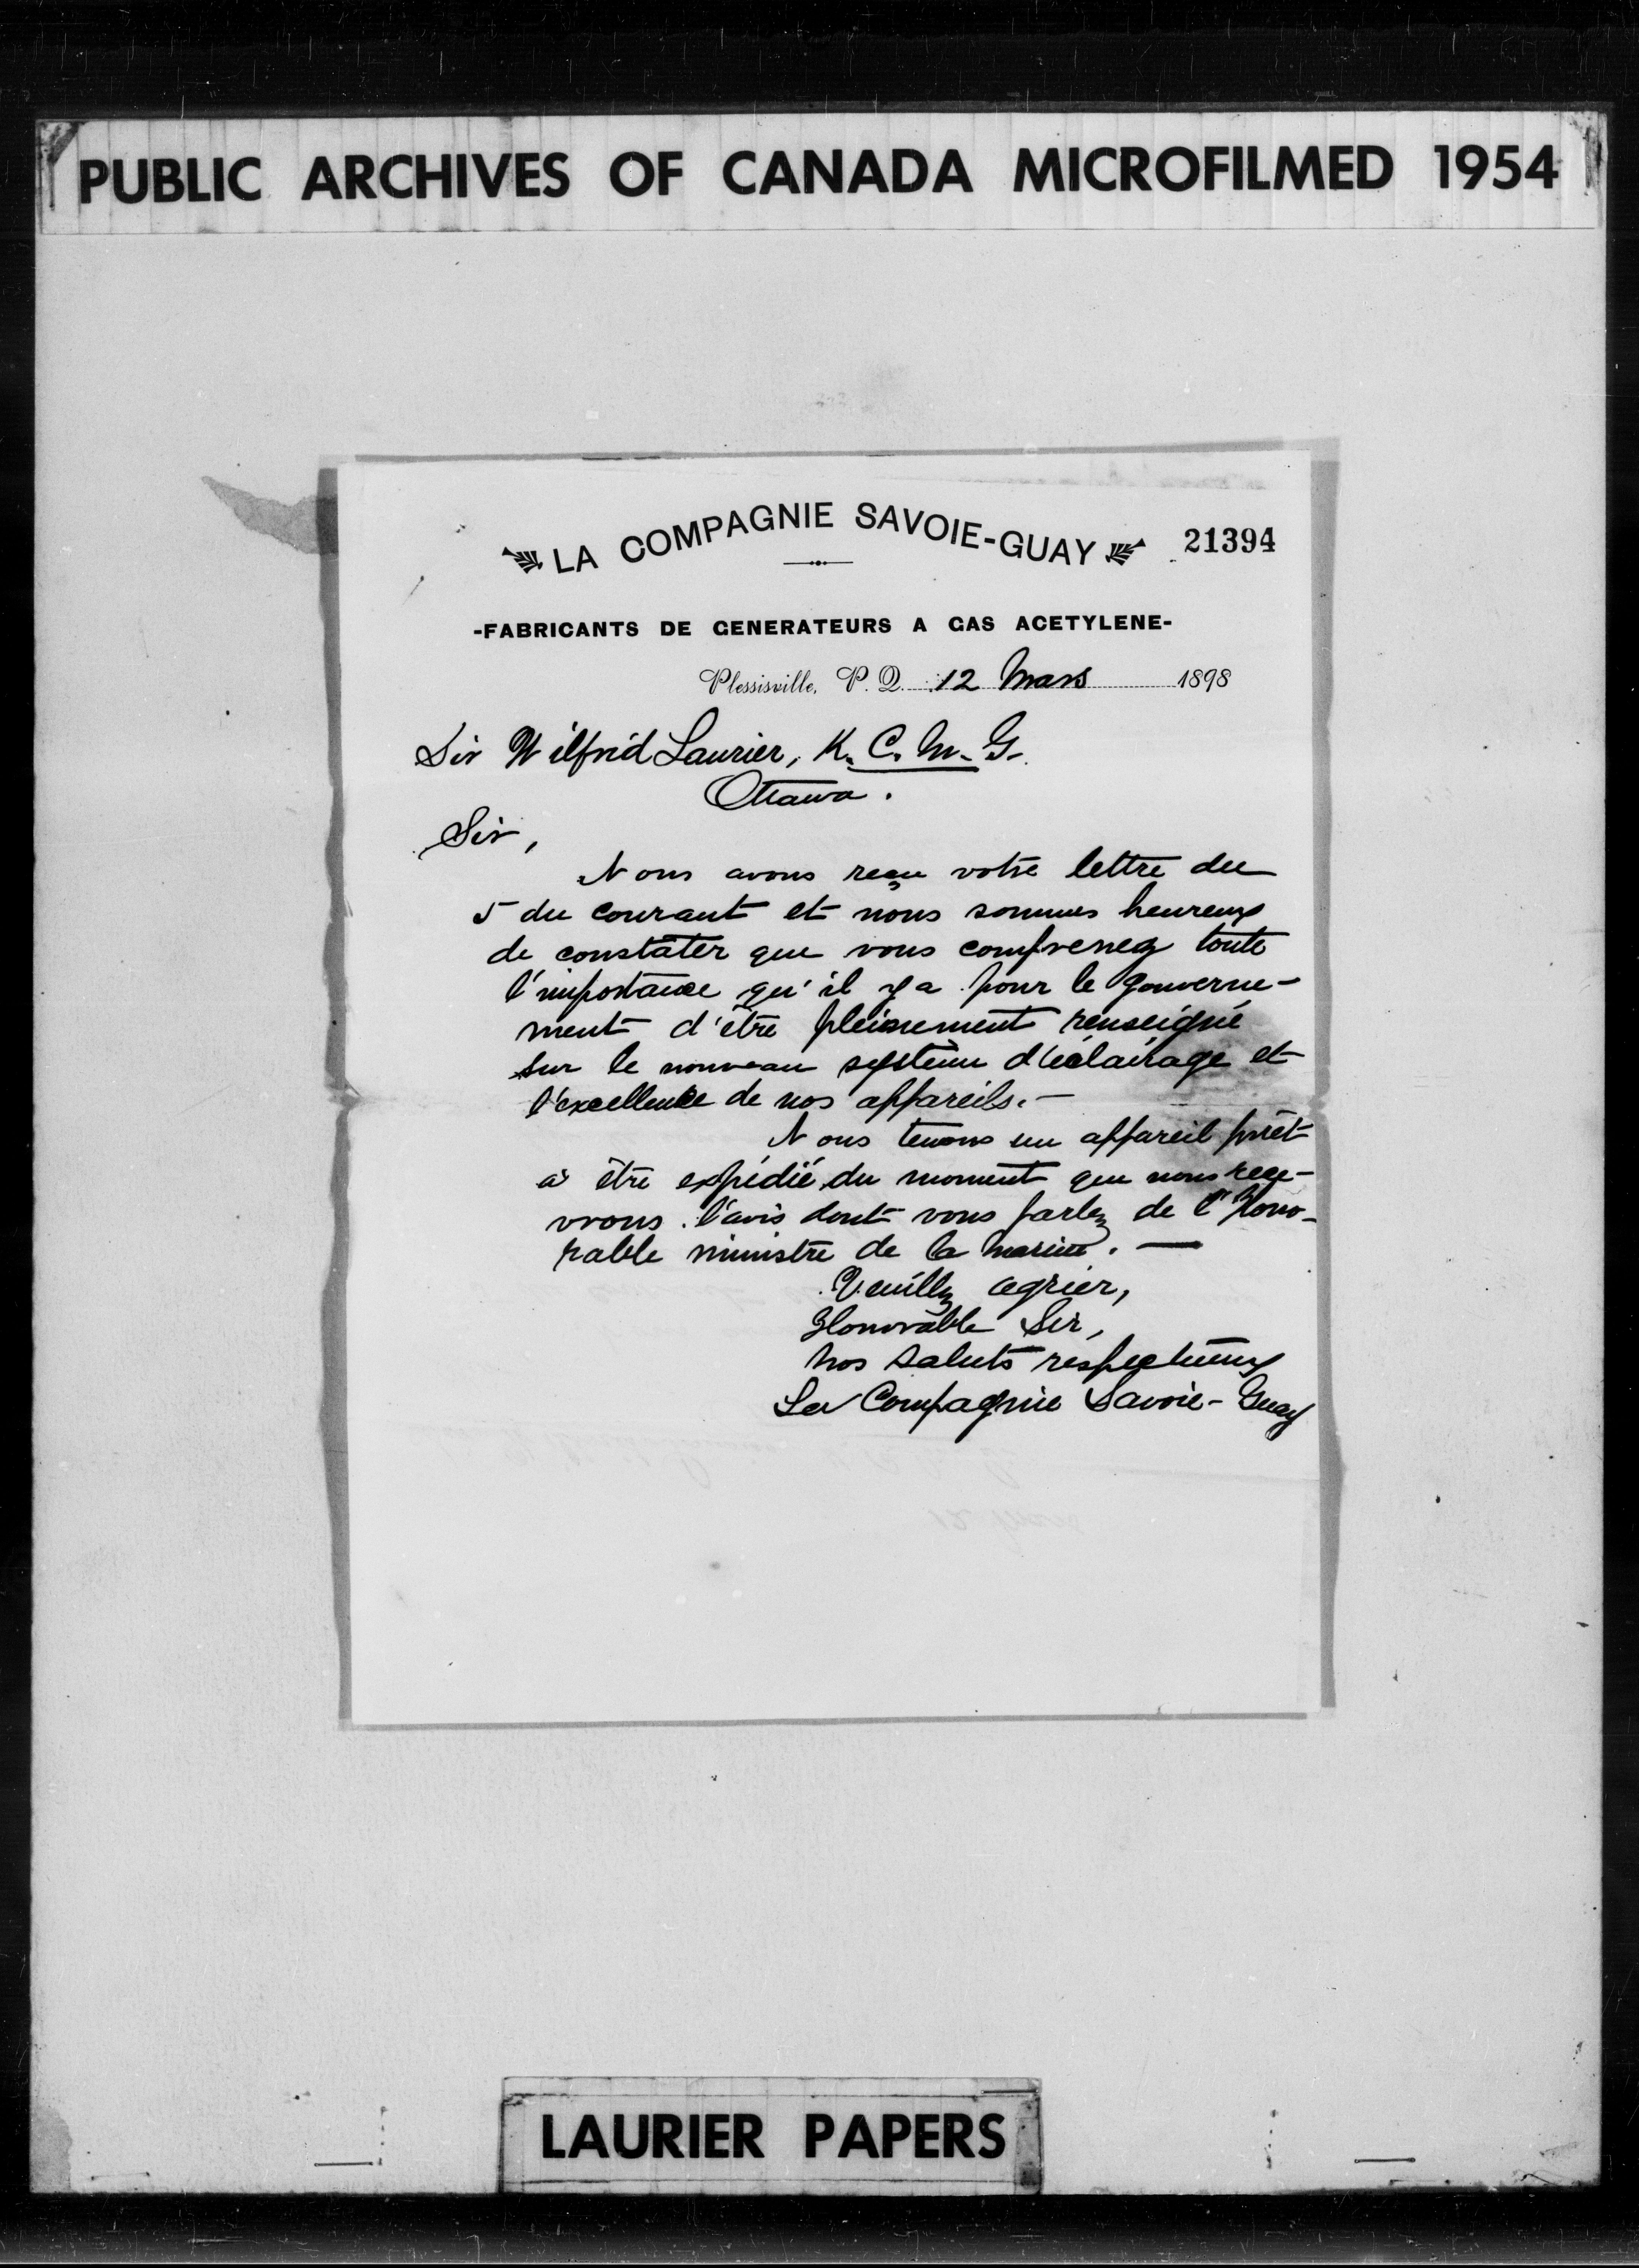 PUBLIC ARCHIVES OF CANADA MICROFILMED 1954
LA COMPAGNIE SAVOIE-GUAY
21394
-FABRICANTS DE GENERATEURS A GAS ACETYLENE-
Plessisville, P. Q. 12 Mars 1898
Sir Wilfrid Laurier, K. C. M. G.
Ottawa.
Sir,
Nous avons reçu votre lettre du
5 du courant et nous sommes heureux
de constater que vous comprenez toute
l'importance qu'il y a pour le gouverne-
ment d'être pleinement renseigné
sur le nouveau système d'éclairage et
l'excellence de nos appareils.—
Nous tenons un appareil prêt
à être expédié du moment que nous rece-
vrons l'avis dont vous parlez de l'Hono-
rable ministre de la marine. —
Veuillez agréer,
Honorable Sir,
Nos saluts respectueux
La Compagnie Savoie-Guay
LAURIER PAPERS